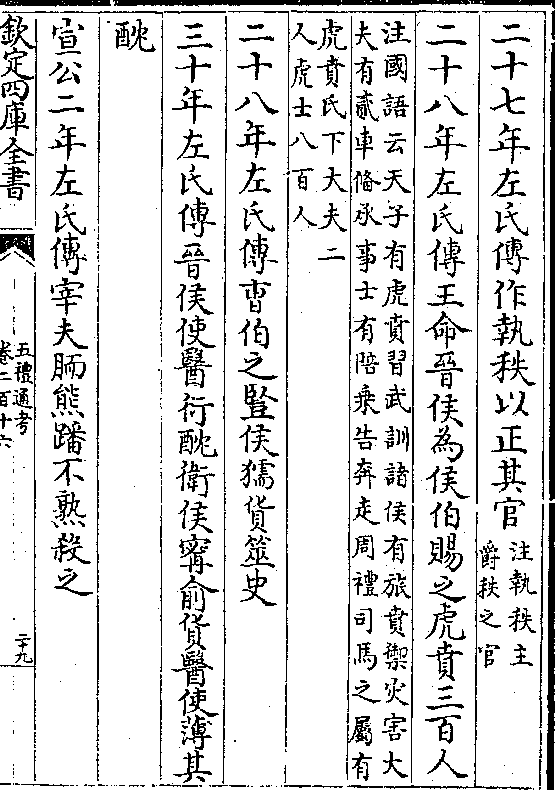 二十七年左氏傳作執秩以正其官注執秩主
爵秩之官
二十八年左氏傳王命晉侯為侯伯賜之虎賁三百人
注國語云天子有虎賁習武訓諸侯有旅賁禦災害大
夫有貳車備承事士有陪乗告奔走周禮司馬之屬有
虎賁氏下大夫二
人虎士八百人
二十八年左氏傳曹伯之豎侯獳貨筮史
三十年左氏傳晉侯使醫衍酖衛侯甯俞貨醫使薄其
酖
宣公二年左氏傳宰夫胹熊蹯不熟殺之
欽定四庫全書
五禮通考
卷二百十六
二十九